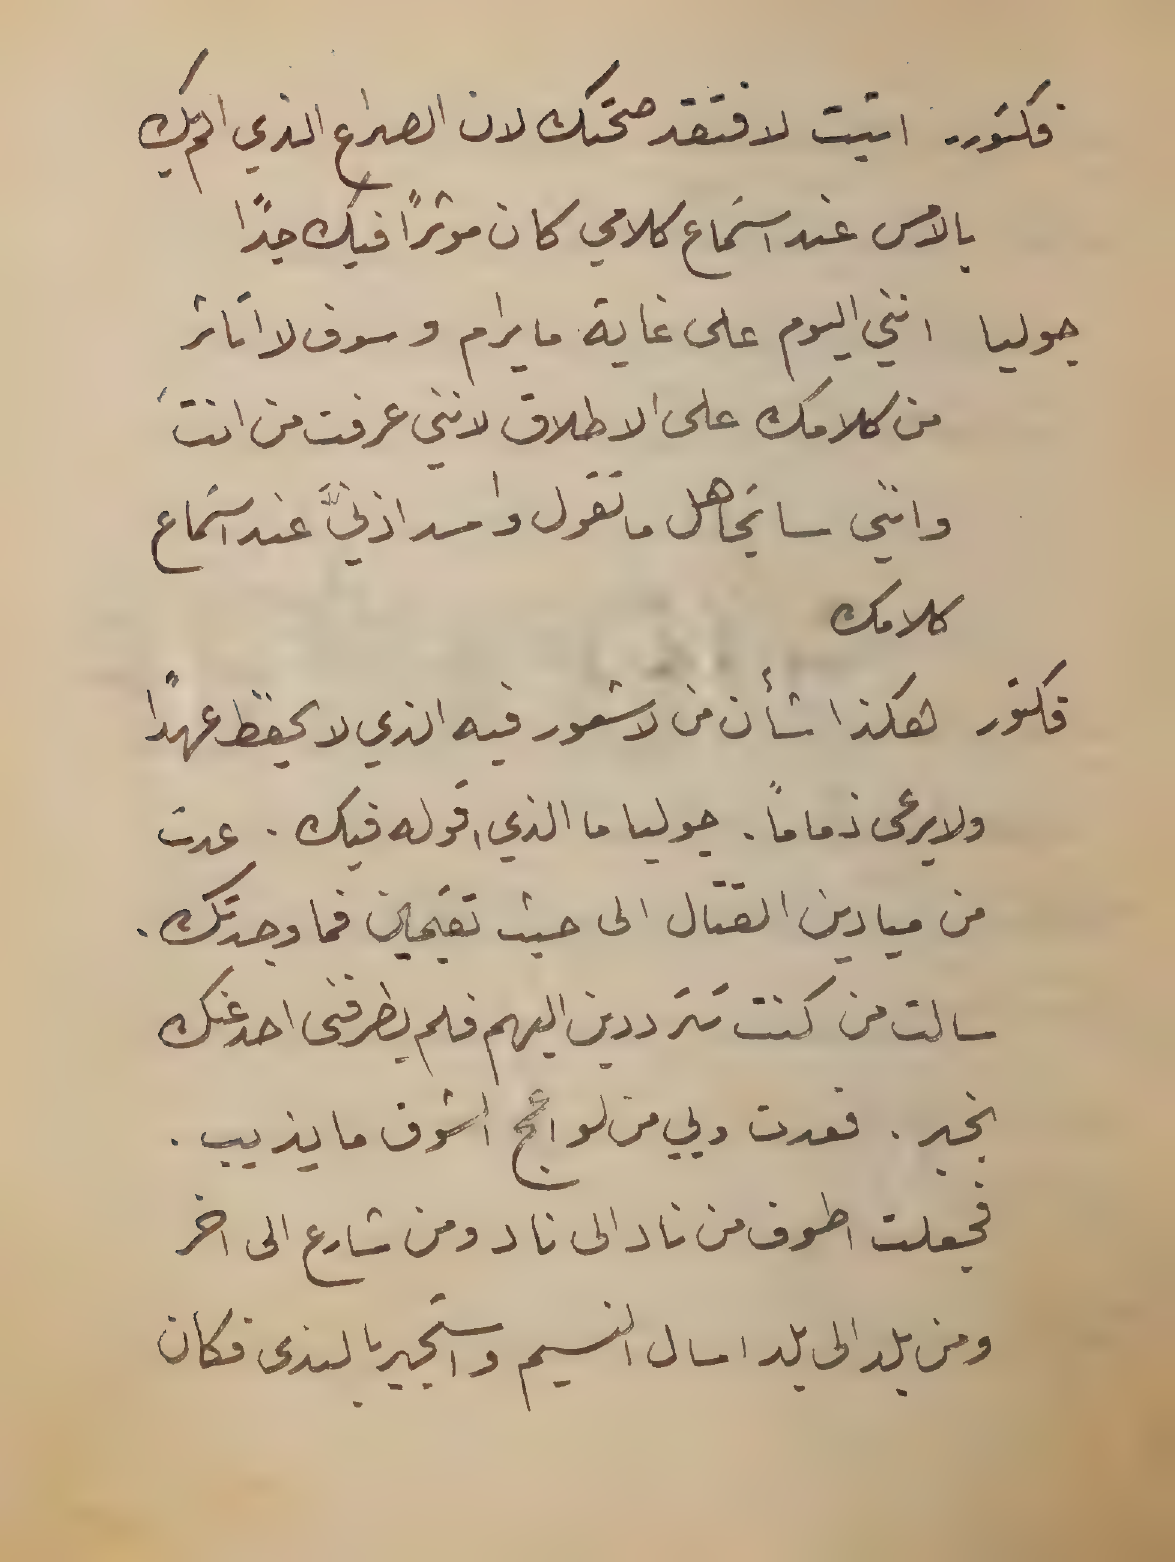 فكتور - اتيت لافتقد صحتك لان الصداع الذي الم بك
بالامس عند استماع كلامي كان موثرًا فيك جدًا
جوليا انني اليوم على غاية ما يرام وسوف لا اتاثر
من كلامك على الاطلاق لانني عرفت من انتَ
وانني ساتجاهل ما تقول واسد اذنيَّ عند استماع
كلامك
فكتور هكذا شأن من لا شعور فيه الذي لا يحفظ عهدًا
ولا يرعى ذماماً . جوليا ما الذي اقوله فيك . عدت
من ميادين القتال الى حيث تقيمين فما وجدتك .
سالت من كنت تترددين اليهم فلم يطرفنى احد عنك
بخبر . فعدت وبي من لواعج الشوق ما يذيب .
فجعلت اطوف من ناد الى ناد ومن شارع الى اخر
ومن بلد الى بلد اسال النسيم واستجير بالندى فكان